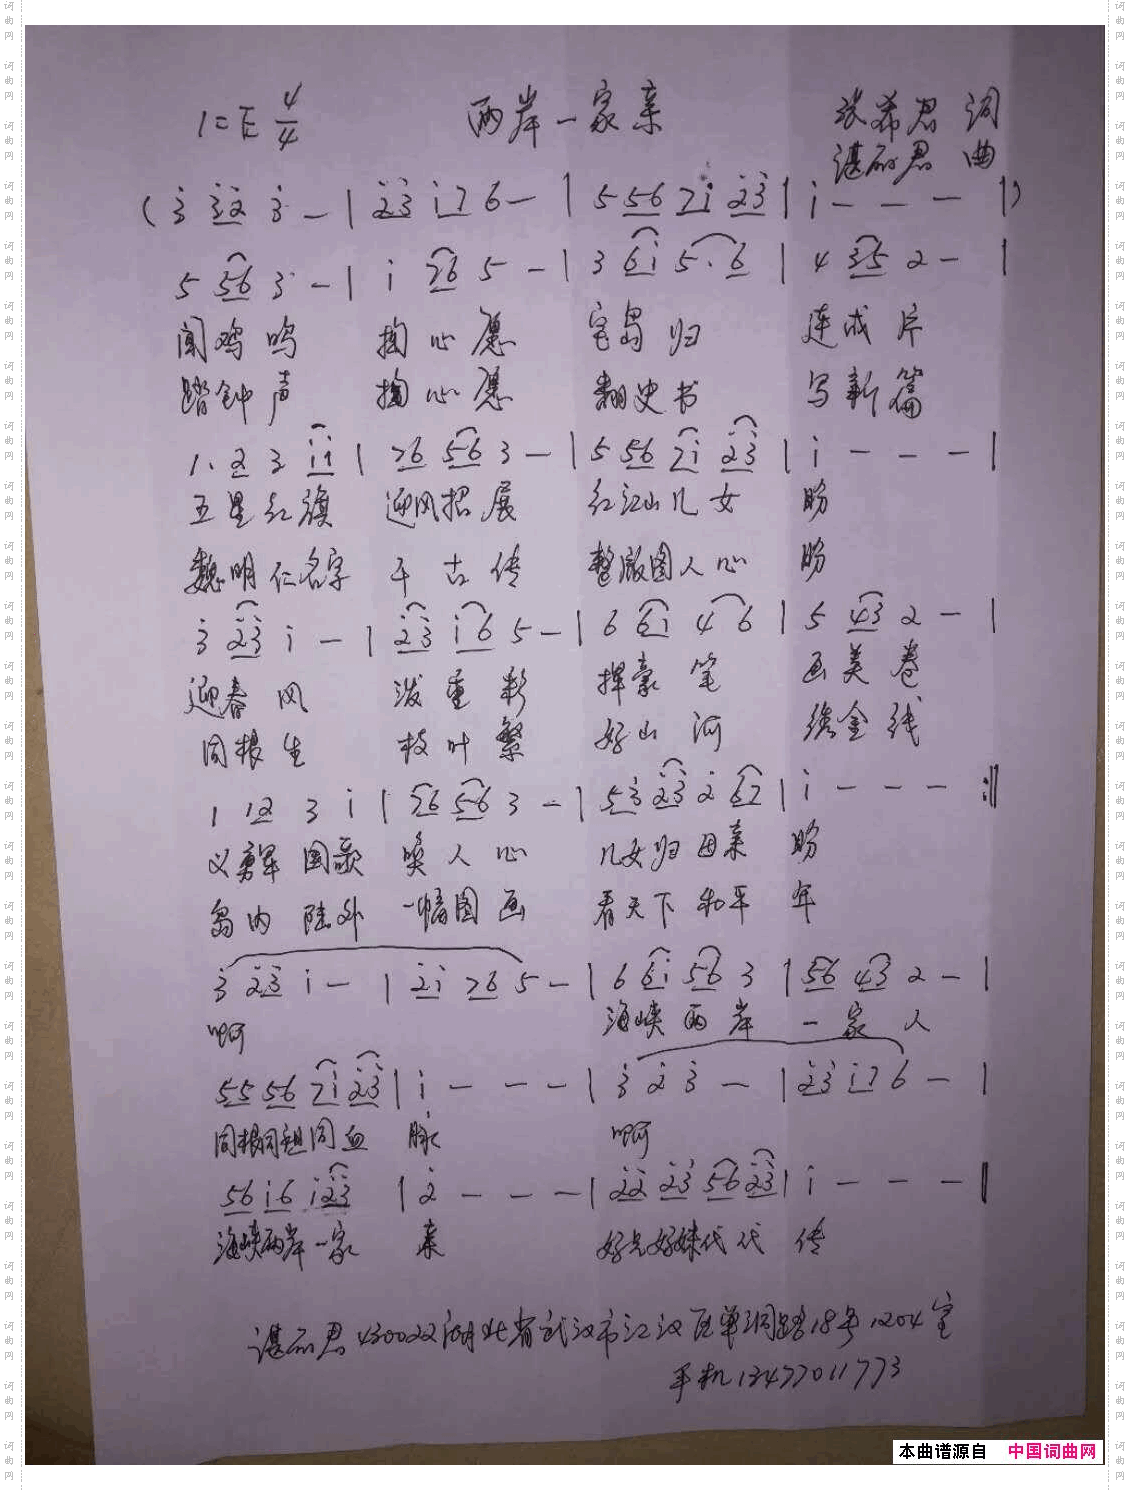 1=E 4/4 两岸一家亲 张希君 词
谌丽君 曲
(3̇ 3̇2̇ 3̇ - | 2̇3̇ i7 6 - | 5 56 7i 2̇3̇ | i - - - |)
5 56 3 - | i 76 5 - | 3 6i 5· 6 | 4 35 2 - |
闻鸡鸣 掏心愿 宝岛归 连成片
踏钟声 掏心愿 翻史书 写新篇
1· 2 3 ii | 76 56 3 - | 5 56 7i 2̇3̇ | i - - - |
五星红旗 迎风招展 红江山儿女 盼
魏明仁名字 千古传 整版图人心 盼
3̇ 2̇3̇ i - | 2̇3̇ i6 5 - | 6 6i 4 6 | 5 43 2 - |
迎春风 泼重彩 挥豪笔 画美卷
同根生 枝叶繁 好山河 绣金线
1 12 3 i | 76 56 3 - | 53̇ 2̇3̇ 2̇ 67 | i - - - :||
义勇军国歌 唤人心 儿女归母亲 盼
岛内陆外 一幅图画 看天下和平 年
3̇ 2̇3̇ i - | 2̇i 76 5 - | 6 6i 56 3 | 56 43 2 - |
啊 海峡两岸 一家人
55 56 7i 2̇3̇ | i - - - | 3̇ 2̇ 3̇ - | 2̇3̇ i7 6 - |
同根同祖同血 脉 啊
56 i6 i2̇3̇ | 2̇ - - - | 2̇2̇ 2̇3̇ 56 2̇3̇ | i - - - ||
海峡两岸一家 亲 好兄好妹代代 传
谌丽君 430022湖北省武汉市江汉区单洞路18号1204室
手机13477011773
本曲谱源自 中国词曲网